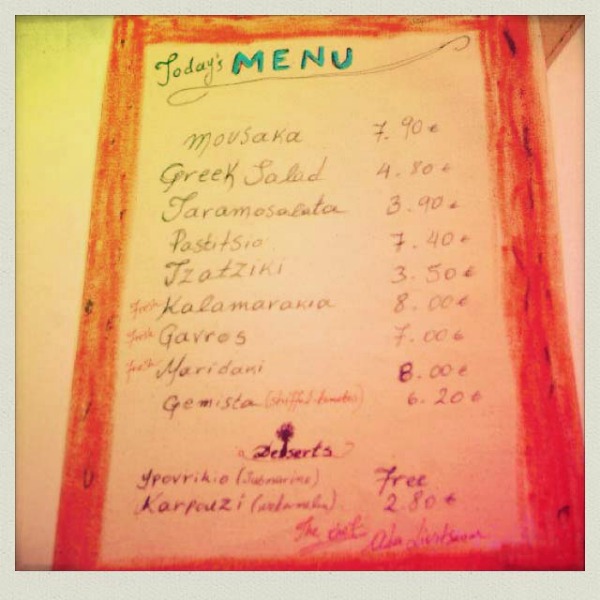 Today's MENU
Mousaka 7.90€
Greek Salad 4.80€
Taramosalata 3.90€
Pastitsio 7.40€
Tzatziki 3.50€
Fresh Kalamarakia 8.00€
Fresh Gavros 7.00€
Fresh Maridaki 8.00€
Gemista (stuffed tomatoes) 6.20€
Desserts
Ypovrikio (Submarine) Free
Karpouzi (watermelon) 2.80€
The chef